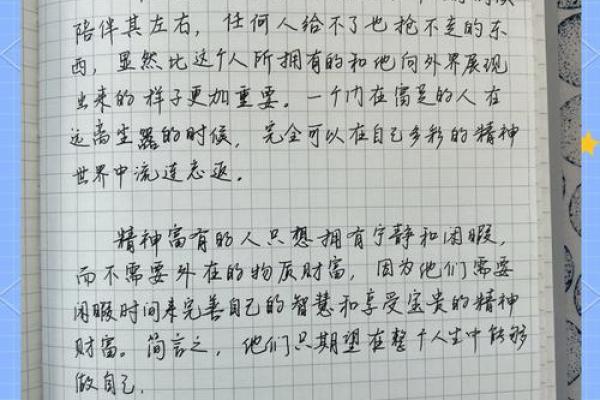 陪伴其左右，任何人给不了也抢不走的东
西，显然比这个人所拥有的和他向外界展现
出来的样子更加重要。一个内在富足的人在
远离尘嚣的时候，完全可以在自己多彩的精神
世界中流连忘返。
精神富有的人只想拥有宁静和闲暇，
而不需要外在的物质财富，因为他们需要
闲暇时间来完善自己的智慧和享受宝贵的精神
财富。简言之，他们只期望在整个人生中能够
做自己.